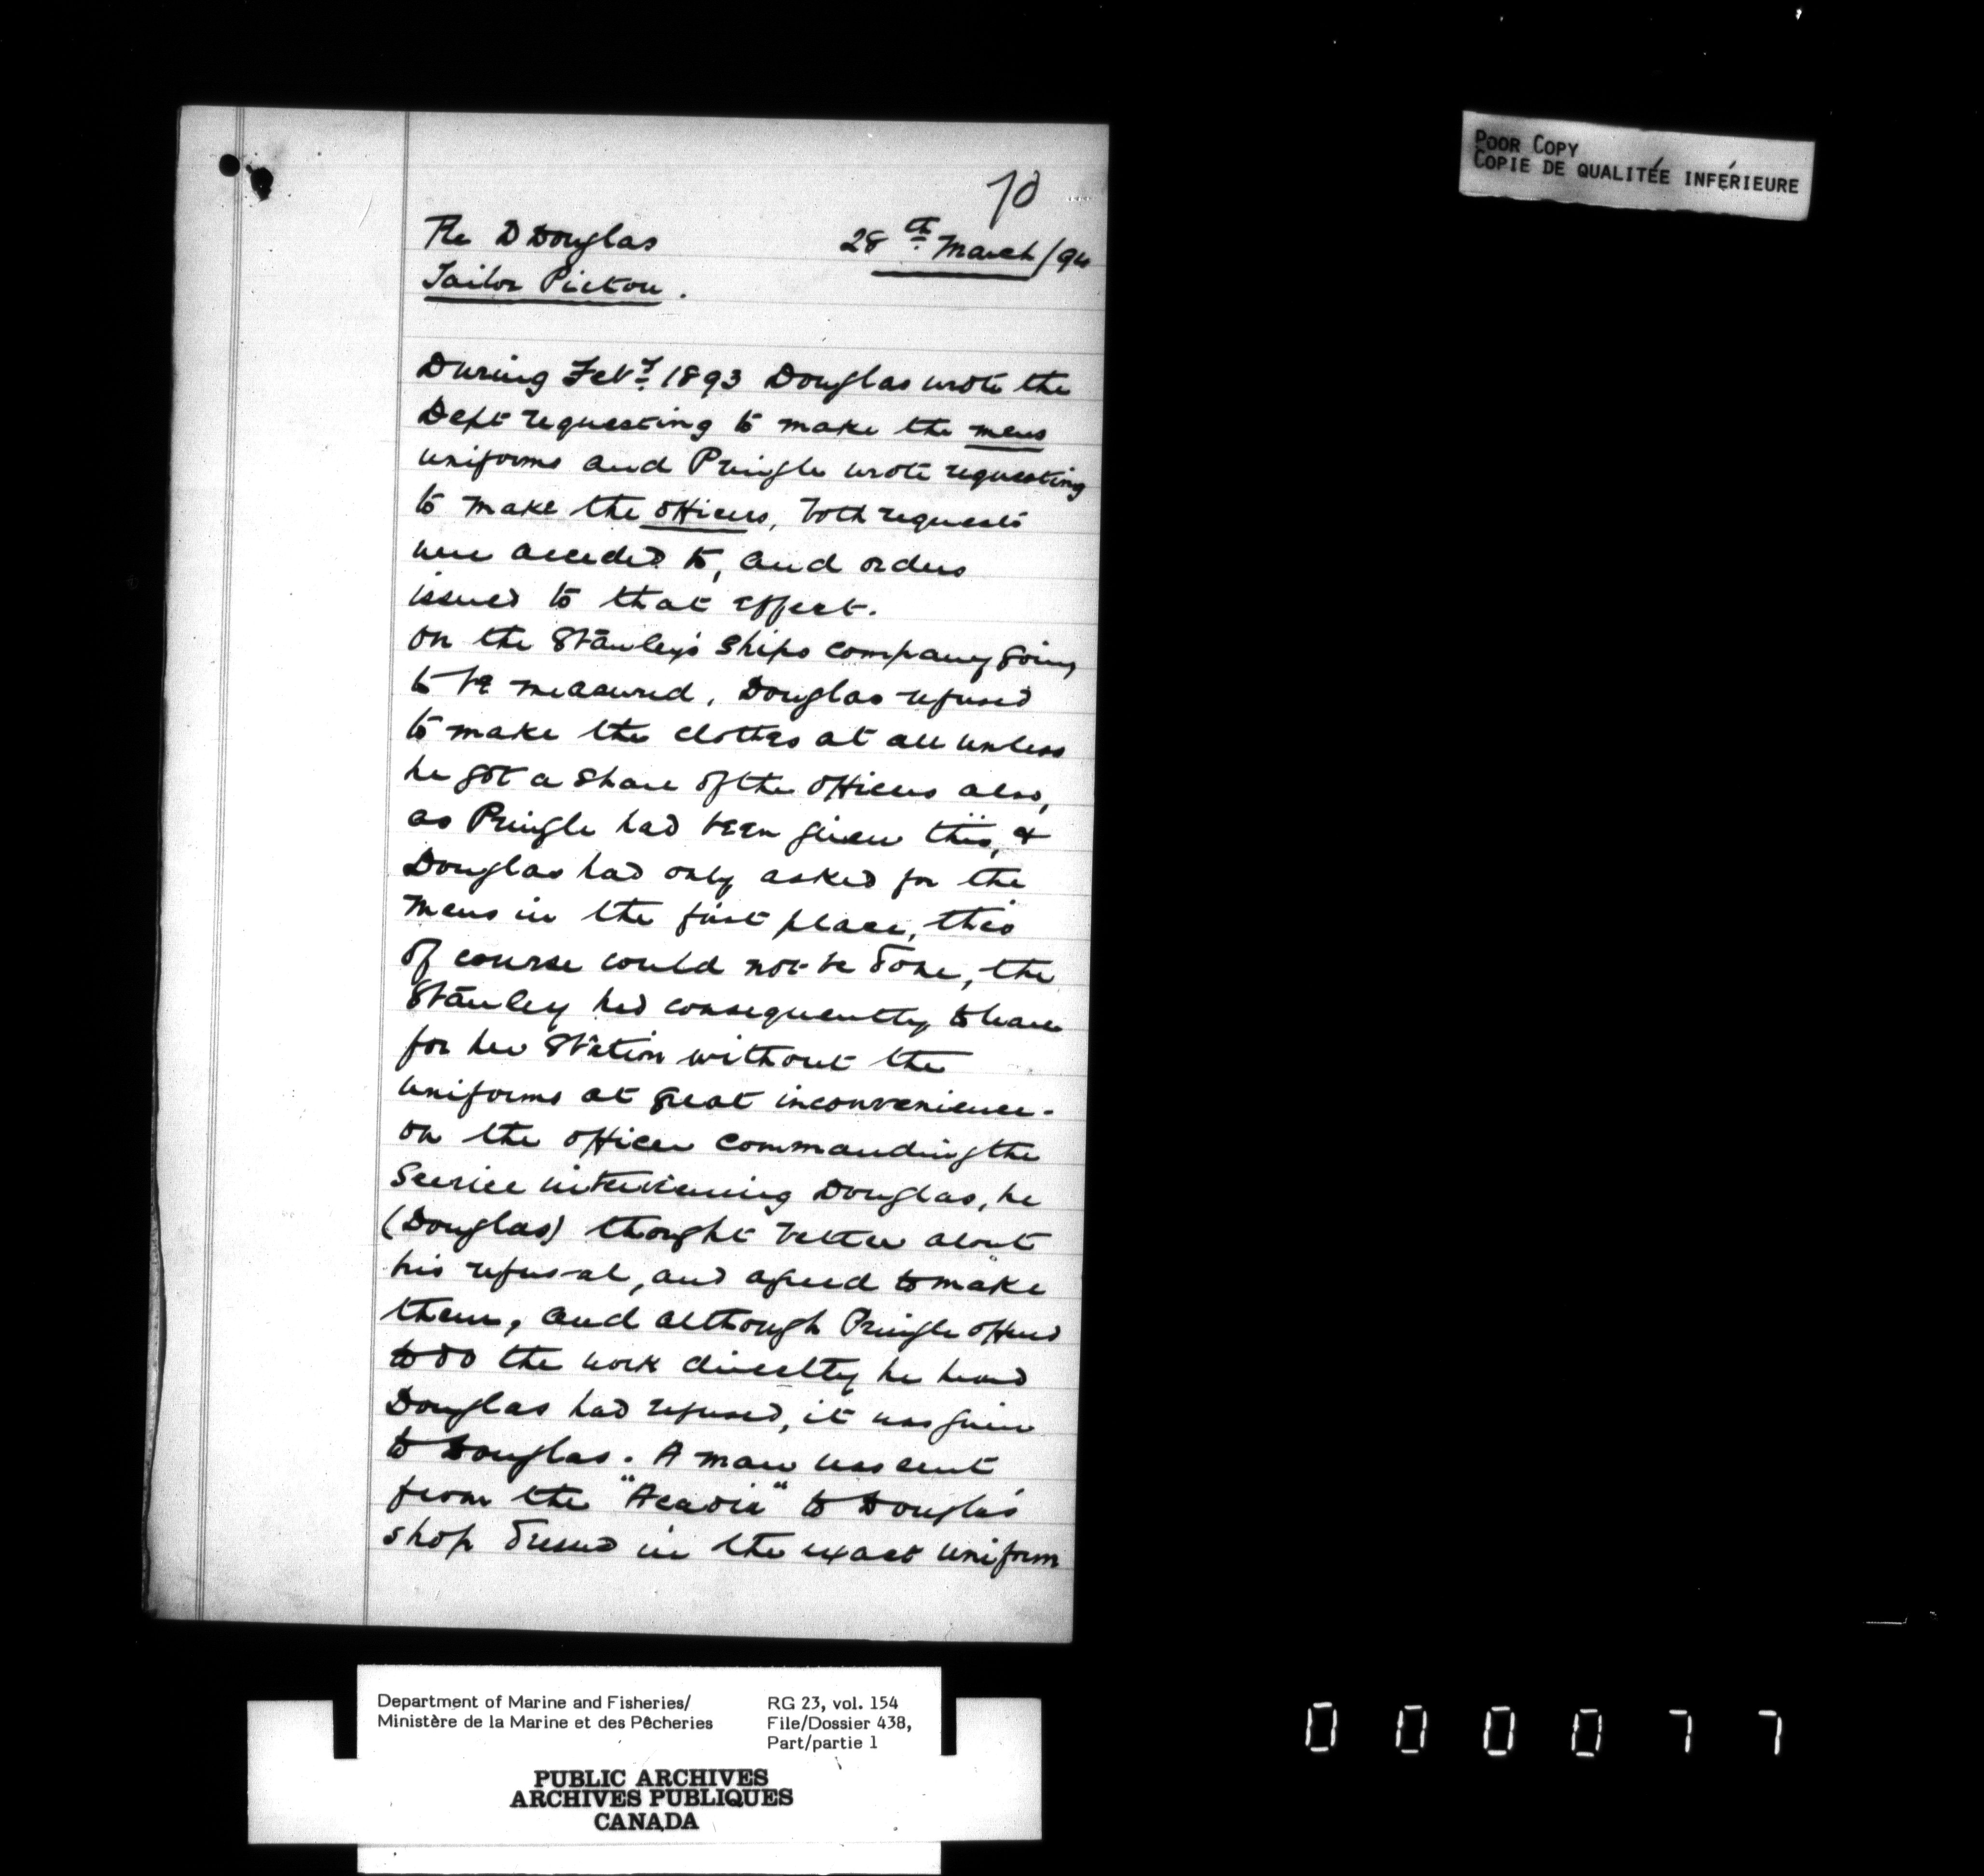 POOR COPY
COPIE DE QUALITÉE INFÉRIEURE
70
Re D Douglas 28th March/94
Tailor Pictou.
During Feby 1893 Douglas wrote the
Dept requesting to make the mens
uniforms and Pringle wrote requesting
to make the officers, both requests
were acceded to, and orders
issued to that effect.
on the Stanley's ships company going
to be measured, Douglas refused
to make the clothes at all unless
he got a share of the officers also,
as Pringle had been given this, &
Douglas had only asked for the
mens in the first place, this
of course could not be done, the
Stanley had consequently to leave
for her station without the
uniforms at great inconvenience.
on the officer commanding the
Service interviewing Douglas, he
(Douglas) thought better about
his refusal, and agreed to make
them, and although Pringle offered
to do the work directly he heard
Douglas had refused, it was given
to Douglas. A man was sent
from the "Acadia" to Douglas
shop dressed in the exact uniform
Department of Marine and Fisheries/ RG 23, vol. 154
Ministère de la Marine et des Pêcheries File/Dossier 438,
Part/partie 1
PUBLIC ARCHIVES
ARCHIVES PUBLIQUES
CANADA
000077